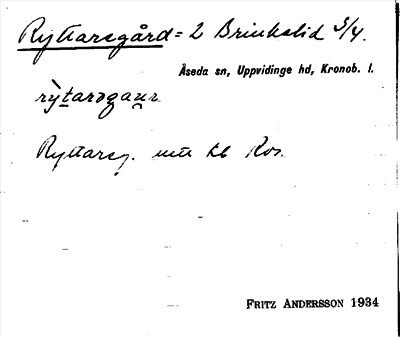 Ryttaregård = 2 Brinkelid 5/4.
Åseda sn, Uppvidinge hd, Kronob. l.
rỳtarəgaur
Ryttareg. utt kb Ros.
FRITZ ANDERSSON 1934